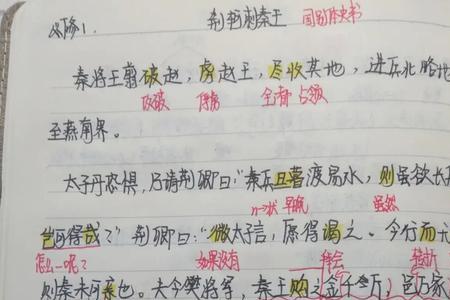 必修1. 荆轲刺秦王 国别体史书
秦将王翦破赵,虏赵王,尽收其地,进兵北略地
攻破 俘虏 全都 占领
至燕南界。
太子丹恐惧,乃请荆卿曰:"秦兵旦暮渡易水,则虽欲长
n→状 早晚 虽然
岂可得哉?"荆卿曰:"微太子言,臣愿得谒之。今行而无
怎么…呢? 如果没有 转折
则秦未可亲也。夫今樊将军,秦王购之金千斤,邑万家